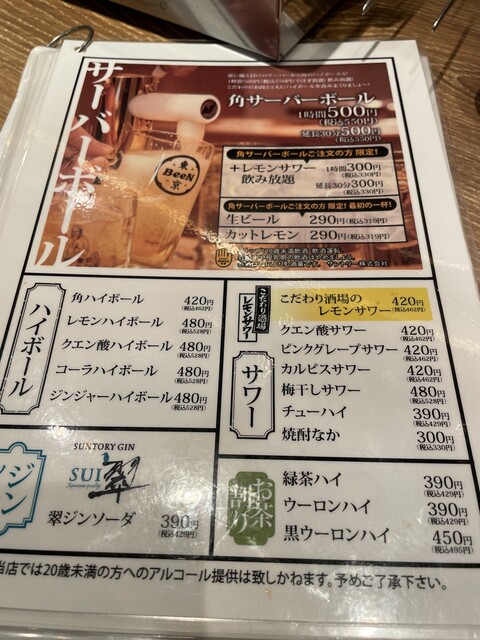 サーバーボール
角サーバーボール
1時間500円
(税込550円)
延長30分500円
(税込550円)
角サーバーボールご注文の方 限定!
+レモンサワー
飲み放題
1時間300円
(税込330円)
延長30分300円
(税込330円)
角サーバーボールご注文の方 限定! 最初の一杯!
生ビール 290円(税込319円)
カットレモン 290円(税込319円)
東京
BeeN
ハイボール
角ハイボール 420円
(税込462円)
レモンハイボール 480円
(税込528円)
クエン酸ハイボール 480円
(税込528円)
コーラハイボール 480円
(税込528円)
ジンジャーハイボール 480円
(税込528円)
こだわり酒場
レモンサワー
こだわり酒場の
レモンサワー 420円
(税込462円)
サワー
クエン酸サワー 420円
(税込462円)
ピンクグレープサワー 420円
(税込462円)
カルピスサワー 420円
(税込462円)
梅干しサワー 480円
(税込528円)
チューハイ 390円
(税込429円)
焼酎なか 300円
(税込330円)
ジン
SUNTORY GIN
SUI 翠
翠ジンソーダ 390円
(税込429円)
お茶割り
緑茶ハイ 390円
(税込429円)
ウーロンハイ 390円
(税込429円)
黒ウーロンハイ 450円
(税込495円)
当店では20歳未満の方へのアルコール提供は致しかねます。予めご了承下さい。